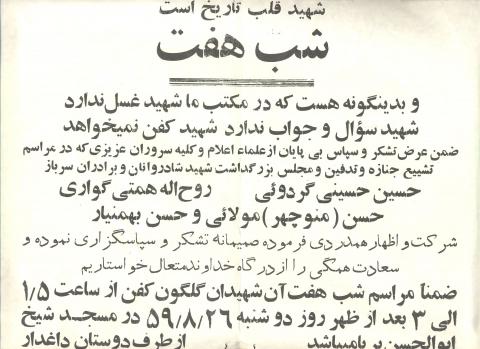 شهید قلب تاریخ است
شب هفت
و بدینگونه هست که در مکتب ما شهید غسل ندارد
شهید سؤال و جواب ندارد شهید کفن نمیخواهد
ضمن عرض تشکر و سپاس بی پایان از علماء اعلام و کلیه سروران عزیزی که در مراسم
تشییع جنازه و تدفین و مجلس بزرگداشت شهید شادروانان و برادران سرباز
حسین حسینی گردوئی روح‌اله همتی گواری
حسن (منوچهر) مولائی و حسن بهمنیار
شرکت و اظهار همدردی فرموده صمیمانه تشکر و سپاسگزاری نموده و
سعادت همگی را از درگاه خداوند متعال خواستاریم
ضمناً مراسم شب هفت آن شهیدان گلگون کفن از ساعت ۱/۵
الی ۳ بعد از ظهر روز دو شنبه ۵۹/۸/۲۶ در مسجد شیخ
ابوالحسن بر پا میباشد از طرف دوستان داغدار